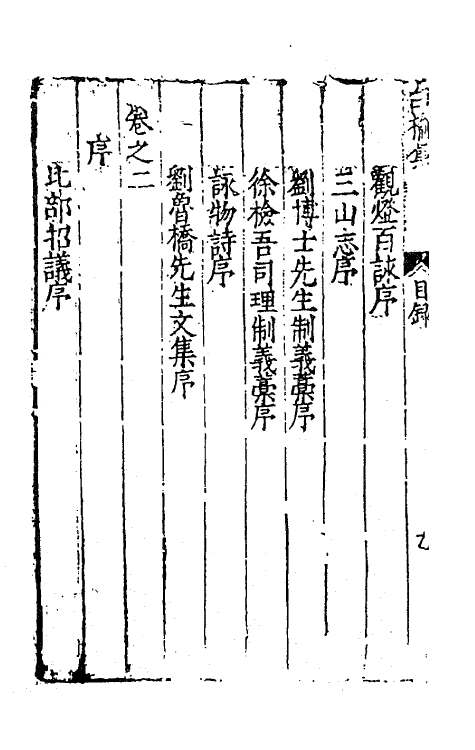 觀燈百詠序
三山志序
劉博士先生制義藁序
徐檢吾司理制義藁序
詠物詩序
劉魯橋先生文集序
卷之二
序
比部招議序
目録